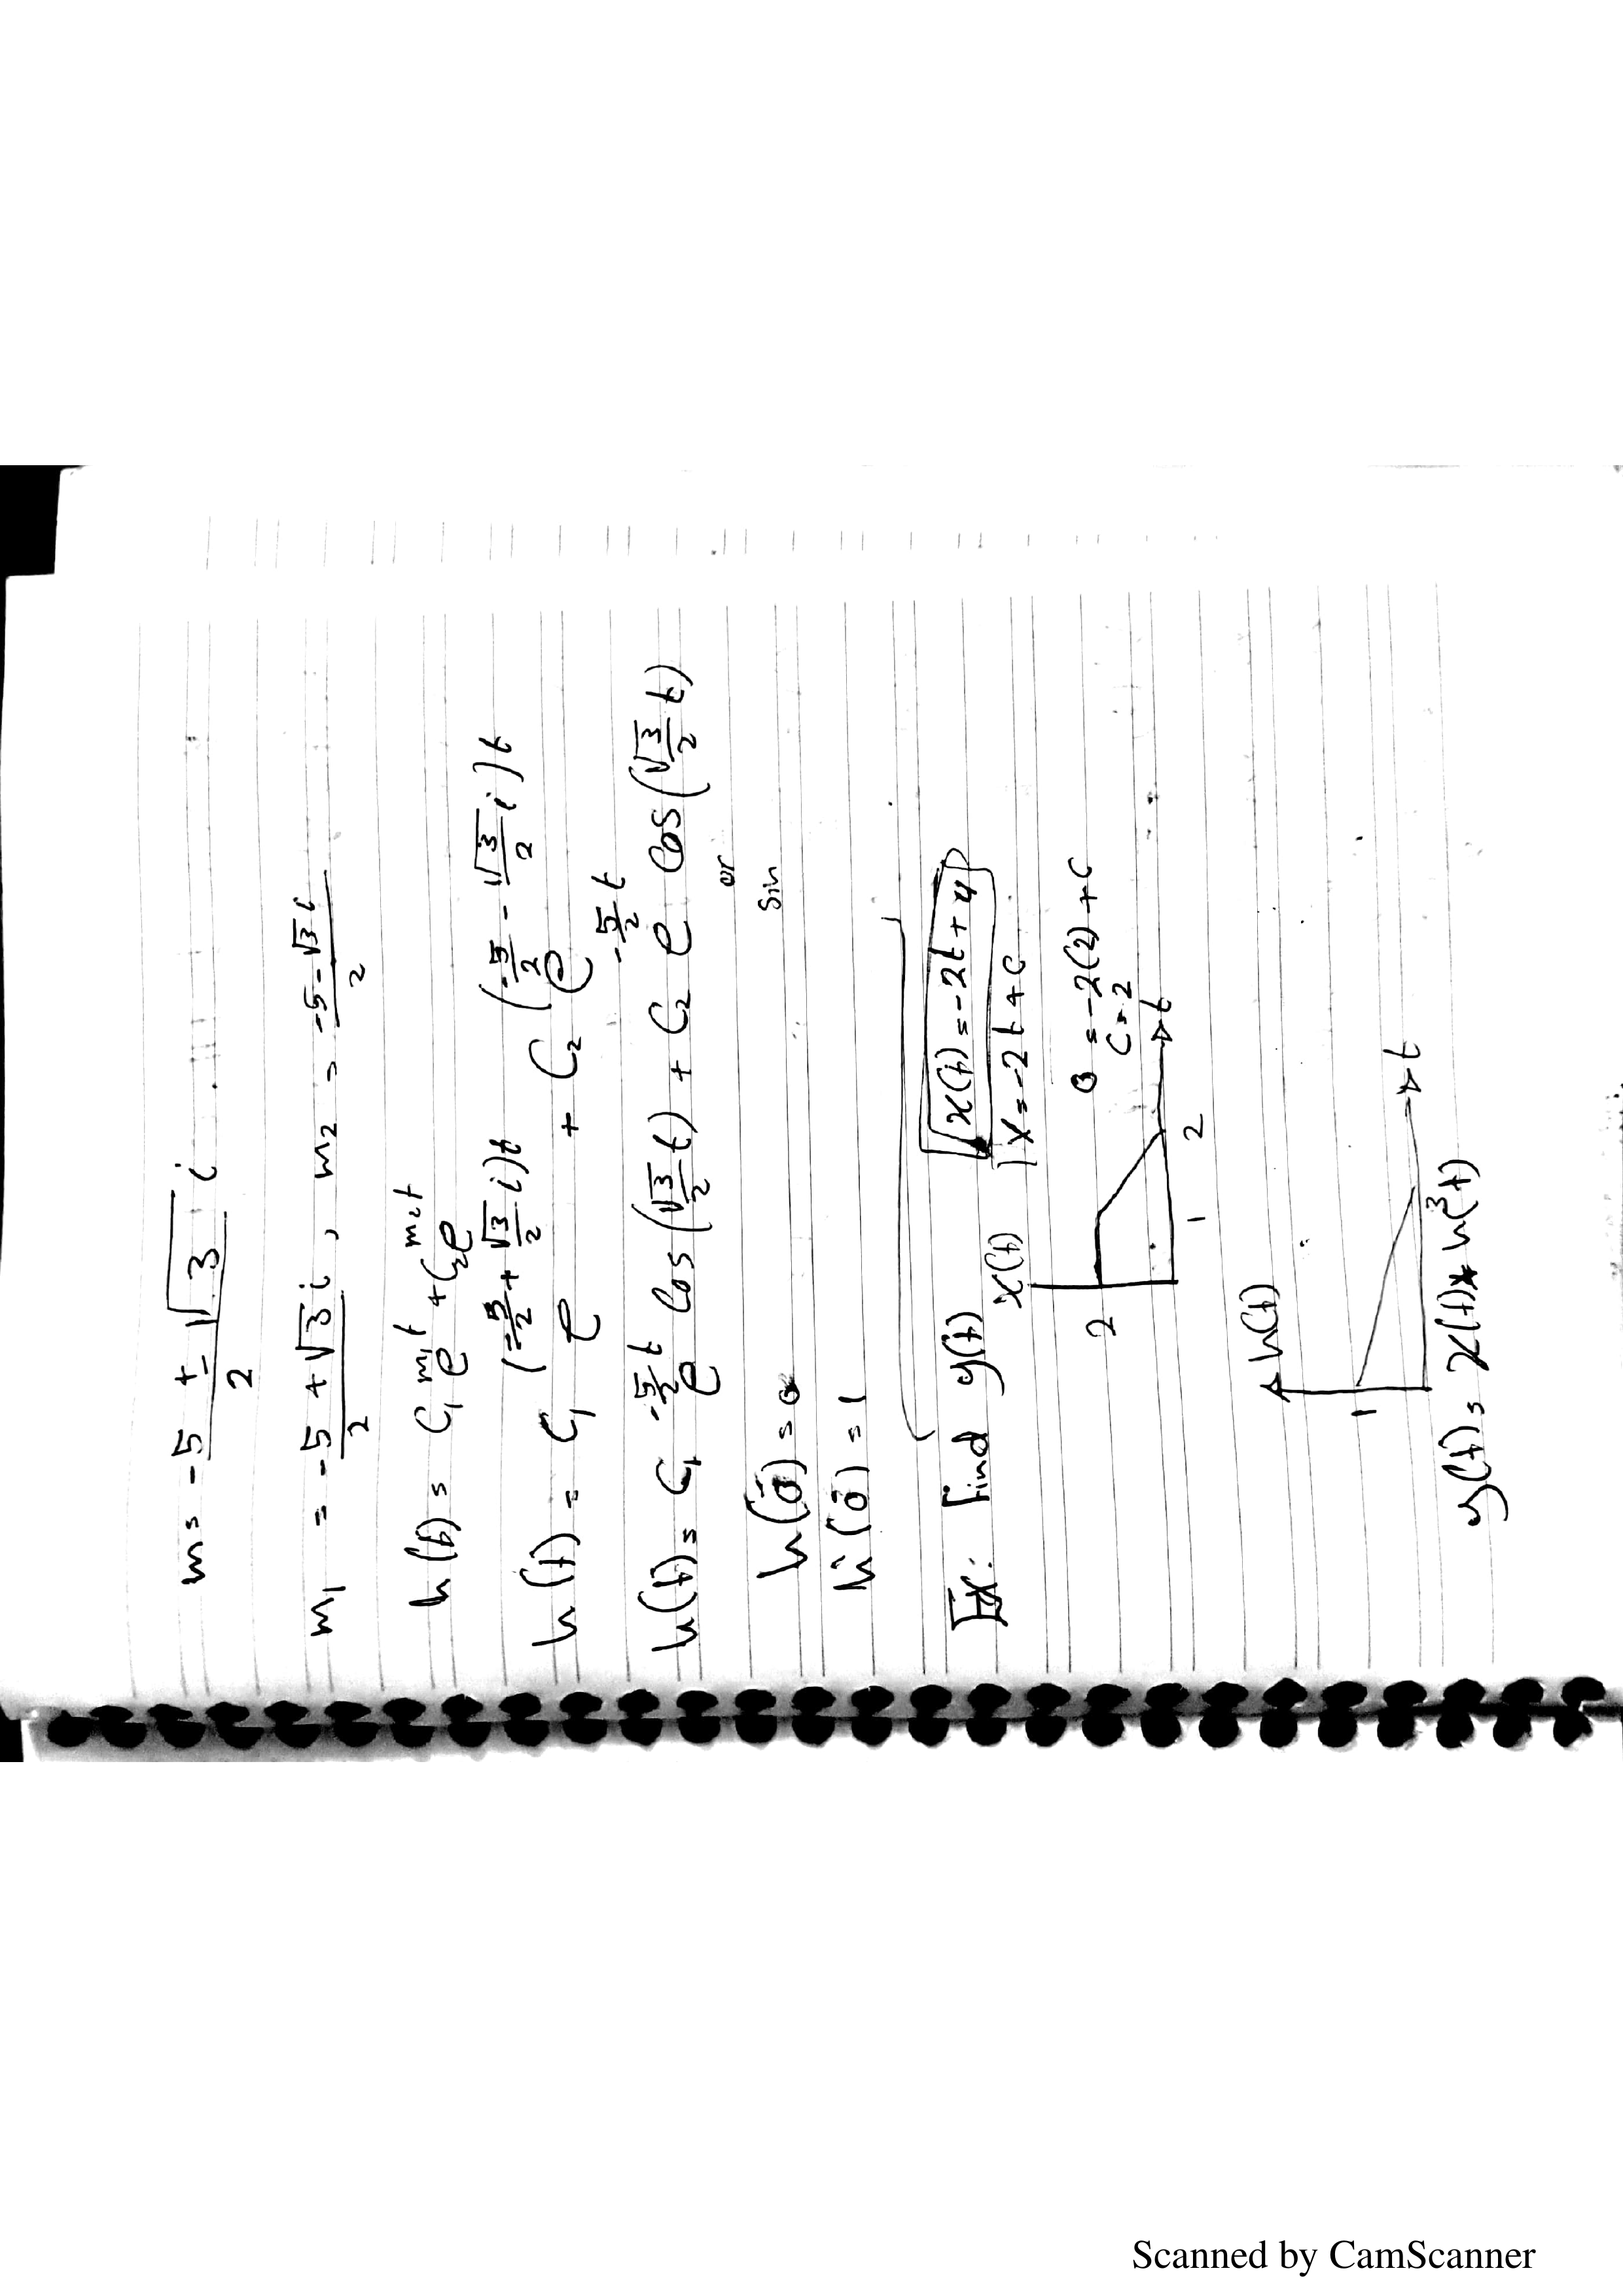 m = -5 ± √3 i / 2
m₁ = -5 + √3 i / 2 , m₂ = -5 - √3 i / 2
h(t) = C₁ e^m₁t + C₂ e^m₂t
h(t) = C₁ e^(-5/2 + √3/2 i)t + C₂ e^(-5/2 - √3/2 i)t
h(t) = C₁ e^-5/2 t Cos(√3/2 t) + C₂ e^-5/2 t Cos(√3/2 t)
or
Sin
h(0⁻) = 0
h̀(0⁻) = 1
Ex: Find y(t)
x(t) = -2t + 4
x(t)
x = -2t + C
0 = -2(2) + C
C = 2
2
1 2
t
h(t)
1
3
t
y(t) = x(t) * h(t)
Scanned by CamScanner